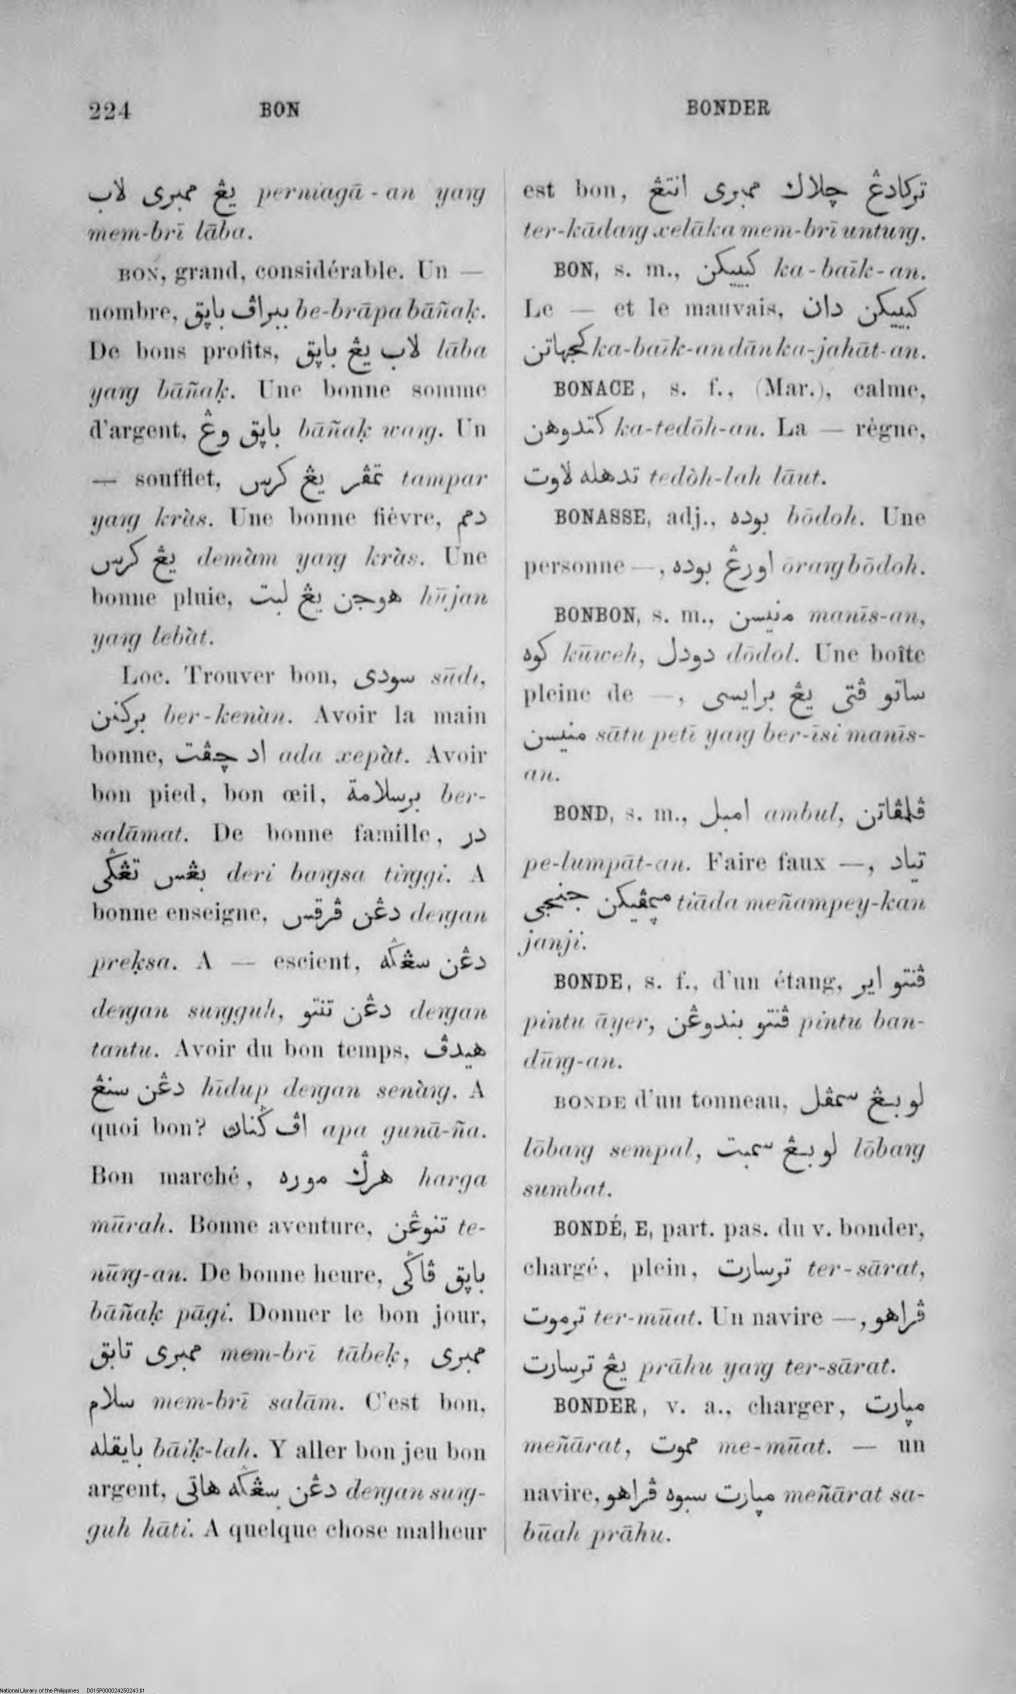 224 BON BONDER
يڠ ممبري لاب perniagā-an yaṅg
mem-brī lāba.
BON, grand, considérable. Un —
nombre, ببراڤ باڽق be-brāpa bāñaḳ.
De bons profits, لاب يڠ باڽق lāba
yaṅg bāñaḳ. Une bonne somme
d'argent, باڽق وڠ bāñaḳ waṅg. Un
— soufflet, تمڤر يڠ كرس tampar
yaṅg kràs. Une bonne fièvre, دمم
يڠ كرس demàm yaṅg kràs. Une
bonne pluie, هوجن يڠ لبت hūjan
yaṅg lebàt.
Loc. Trouver bon, سودي sūdi,
بركنن ber-kenàn. Avoir la main
bonne, اد چڤت ada xepàt. Avoir
bon pied, bon œil, برسلامة ber-
salāmat. De bonne famille, در
بڠس تڠݢي deri baṅgsa tiṅggi. A
bonne enseigne, دڠن ڤرقس deṅgan
preḳsa. A — escient, دڠن سڠݢه
deṅgan suṅgguh, دڠن تنتو deṅgan
tantu. Avoir du bon temps, هيدڤ
دڠن سنڠ hīdup deṅgan senàṅg. A
quoi bon? اڤ ݢناڽ apa gunā-ña.
Bon marché, هرݢ موره harga
mūrah. Bonne aventure, تنوڠن te-
nūṅg-an. De bonne heure, باڽق ڤاݢي
bāñaḳ pāgi. Donner le bon jour,
ممبري تابق mem-brī tābeḳ, ممبري
سلام mem-brī salām. C'est bon,
بايقله bāiḳ-lah. Y aller bon jeu bon
argent, دڠن سڠݢه هاتي deṅgan suṅg-
guh hāti. A quelque chose malheur
est bon, تركادڠ چلاك ممبري انتڠ
ter-kādaṅg xelāka mem-brī untuṅg.
BON, s. m., كبيكن ka-baīk-an.
Le — et le mauvais, كبيكن دان
كجهاتن ka-baīk-an dān ka-jahāt-an.
BONACE, s. f., (Mar.), calme,
كتدوهن ka-tedōh-an. La — règne,
تدهله لاوت tedòh-lah lāut.
BONASSE, adj., بوده bōdoh. Une
personne —, اورڠ بوده ōraṅg bōdoh.
BONBON, s. m., منيسن manīs-an,
كوه kūweh, دودل dōdol. Une boîte
pleine de —, ساتو ڤتي يڠ برايسي
منيسن sātu petī yaṅg ber-īsi manīs-
an.
BOND, s. m., امبل ambul, ڤلمڤاتن
pe-lumpāt-an. Faire faux —, تياد
مڽمڤيكن جنجي tiāda meñampey-kan
janji.
BONDE, s. f., d'un étang, ڤنتو اير
pintu āyer, ڤنتو بندوڠن pintu ban-
dūṅg-an.
BONDE d'un tonneau, لوبڠ سمڤل
lōbaṅg sempal, لوبڠ سمبت lōbaṅg
sumbat.
BONDÉ, E, part. pas. du v. bonder,
chargé, plein, ترسارت ter-sārat,
ترموت ter-mūat. Un navire —, ڤراهو
يڠ ترسارت prāhu yaṅg ter-sārat.
BONDER, v. a., charger, مڽارت
meñārat, مموت me-mūat. — un
navire, مڽارت سبوه ڤراهو meñārat sa-
būah prāhu.
National Library of the Philippines